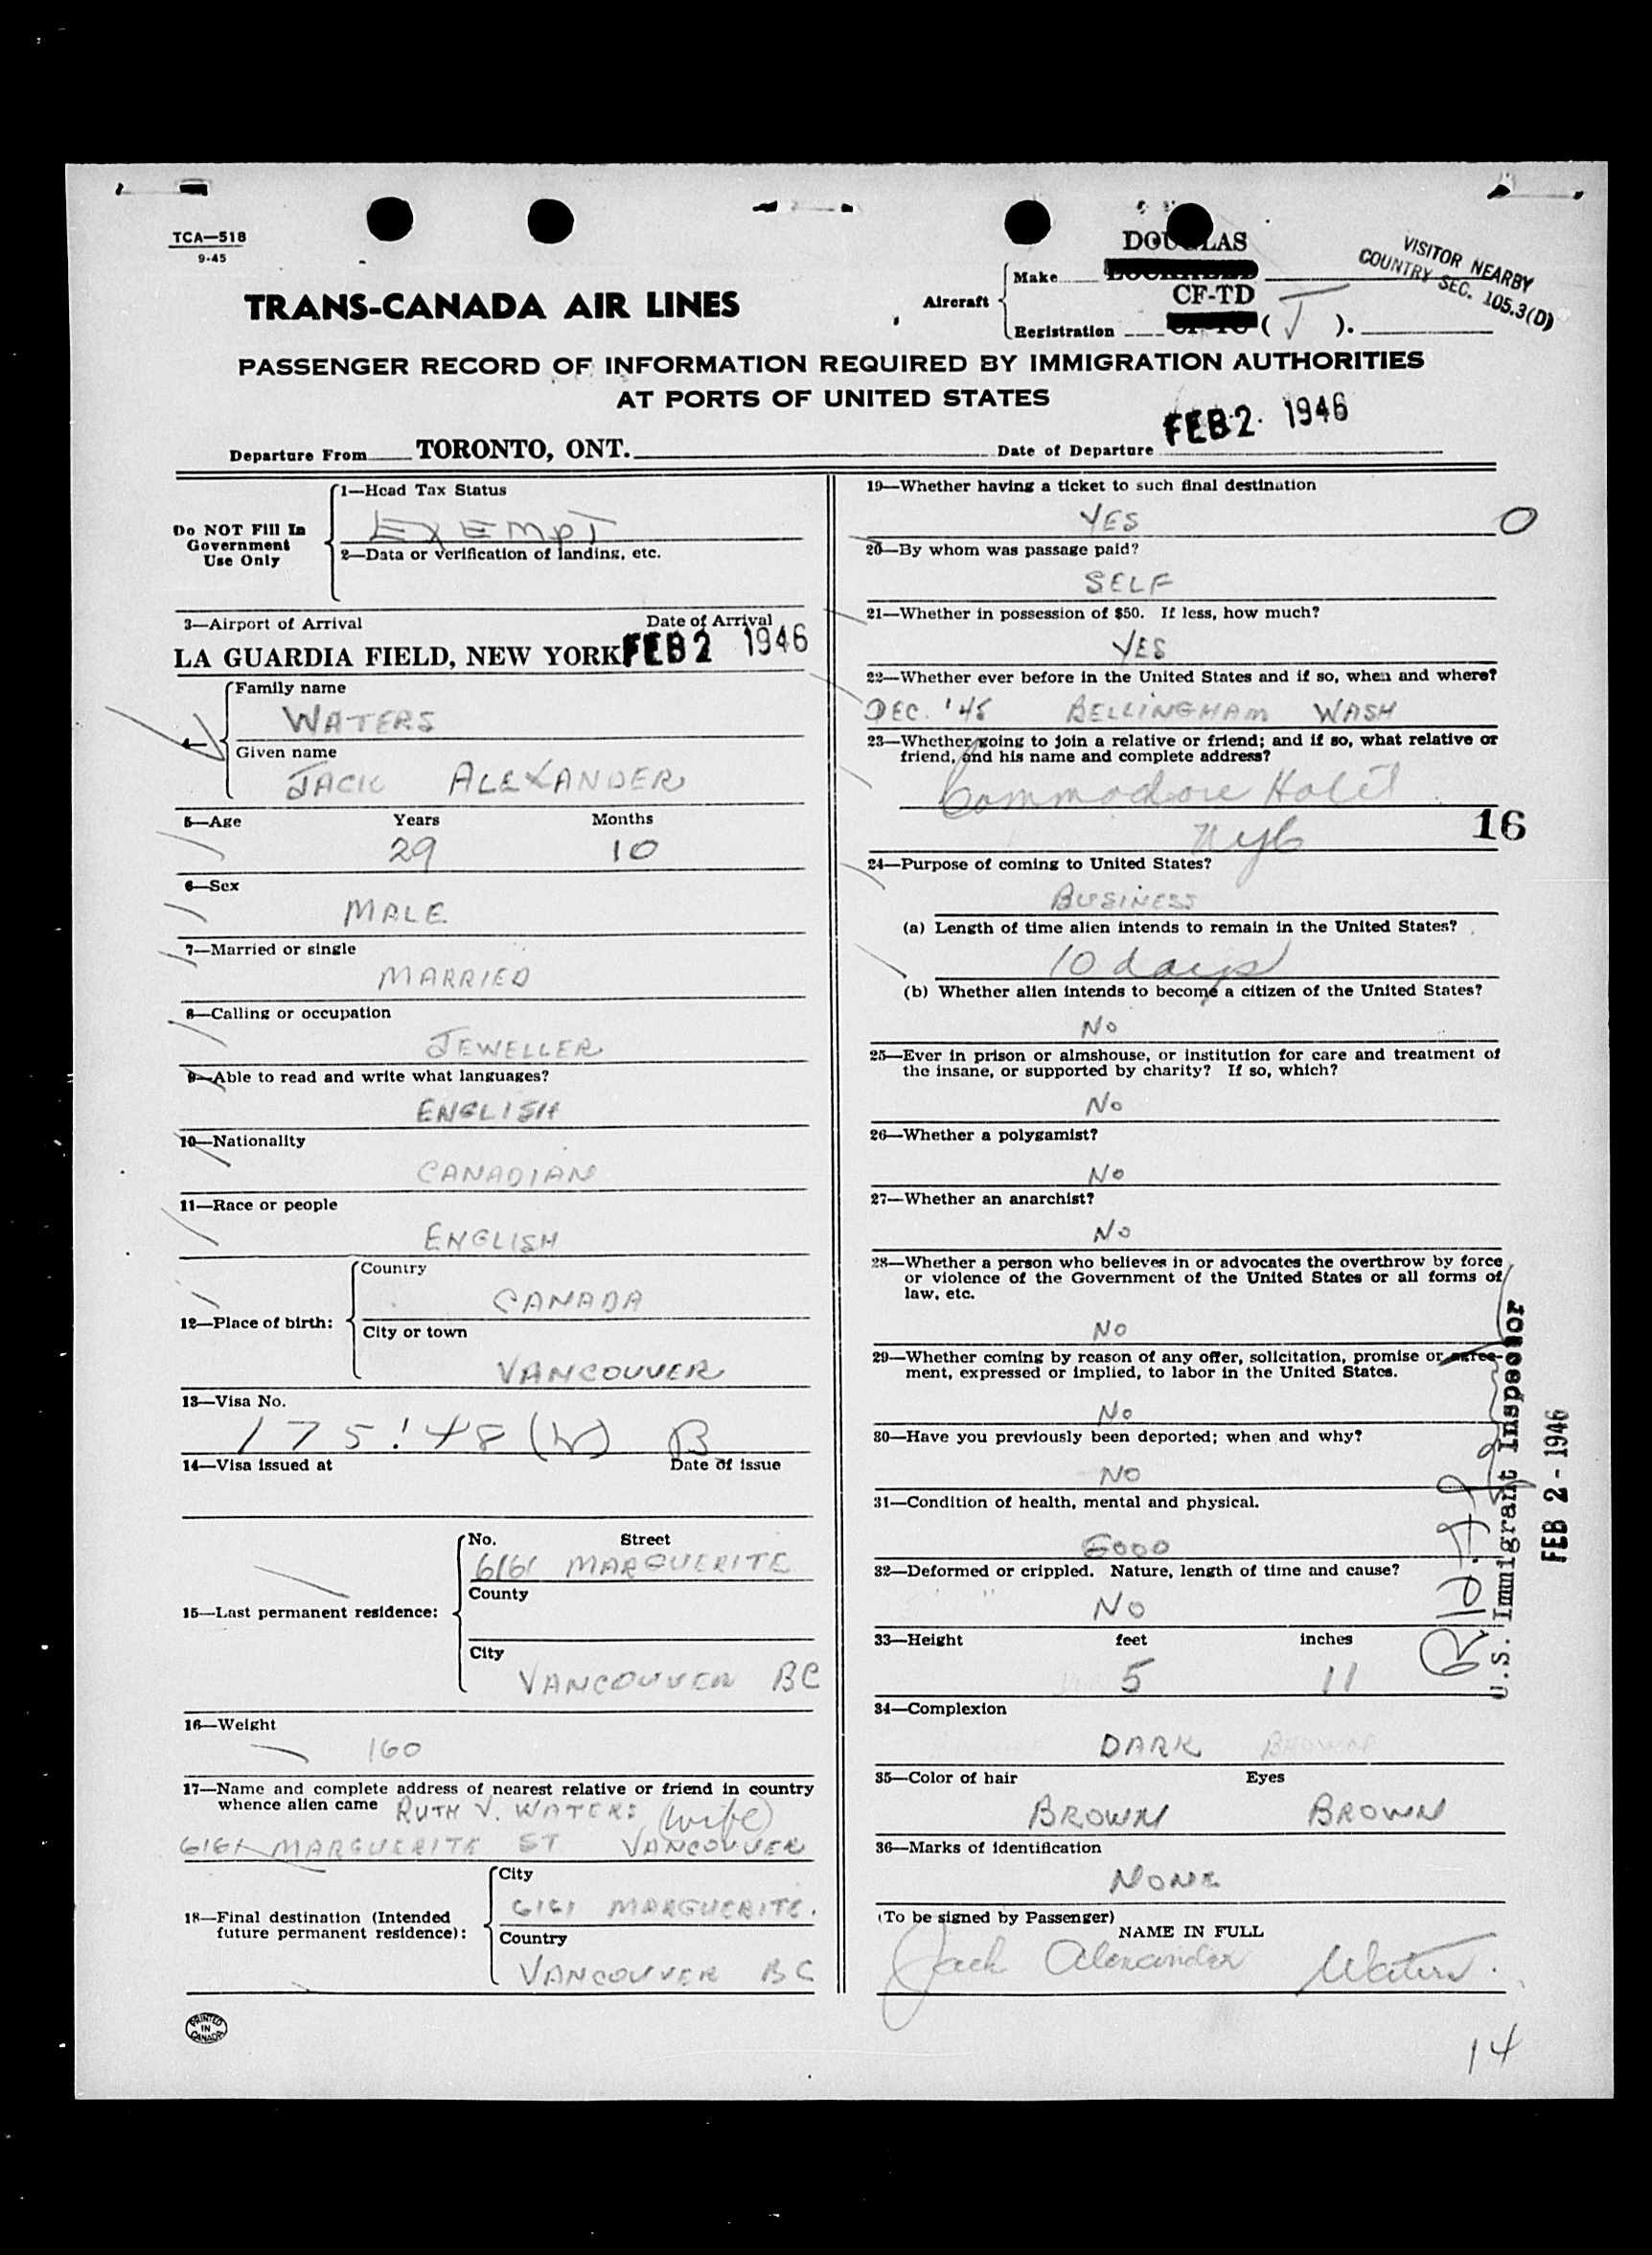 TCA—518
9-45
DOUGLAS
VISITOR NEARBY
COUNTRY SEC. 105.3(D)
Aircraft
Make
TRANS-CANADA AIR LINES
CF-TD
Registration ( J ).
PASSENGER RECORD OF INFORMATION REQUIRED BY IMMIGRATION AUTHORITIES
AT PORTS OF UNITED STATES
Departure From TORONTO, ONT. Date of Departure FEB 2 1946
Do NOT Fill In
Government
Use Only
1—Head Tax Status
EXEMPT
2—Data or verification of landing, etc.
3—Airport of Arrival Date of Arrival
LA GUARDIA FIELD, NEW YORK FEB 2 1946
4—
Family name
WATERS
Given name
JACK ALEXANDER
5—Age Years Months
29 10
6—Sex
MALE
7—Married or single
MARRIED
8—Calling or occupation
JEWELLER
9—Able to read and write what languages?
ENGLISH
10—Nationality
CANADIAN
11—Race or people
ENGLISH
12—Place of birth:
Country
CANADA
City or town
VANCOUVER
13—Visa No.
14—Visa issued at Date of issue
15—Last permanent residence:
No. Street
6161 MARGUERITE
County
City
VANCOUVER BC
16—Weight
160
17—Name and complete address of nearest relative or friend in country
whence alien came RUTH V. WATERS (wife)
6161 MARGUERITE ST VANCOUVER
18—Final destination (Intended
future permanent residence):
City
6161 MARGUERITE.
Country
VANCOUVER BC
PRINTED
IN
CANADA
19—Whether having a ticket to such final destination
YES 0
20—By whom was passage paid?
SELF
21—Whether in possession of $50. If less, how much?
YES
22—Whether ever before in the United States and if so, when and where?
DEC. '45 BELLINGHAM WASH
23—Whether going to join a relative or friend; and if so, what relative or
friend, and his name and complete address?
Commodore Hotel
NYC 16
24—Purpose of coming to United States?
BUSINESS
(a) Length of time alien intends to remain in the United States?
10 days
(b) Whether alien intends to become a citizen of the United States?
No
25—Ever in prison or almshouse, or institution for care and treatment of
the insane, or supported by charity? If so, which?
No
26—Whether a polygamist?
No
27—Whether an anarchist?
No
28—Whether a person who believes in or advocates the overthrow by force
or violence of the Government of the United States or all forms of
law, etc.
No
29—Whether coming by reason of any offer, solicitation, promise or agree-
ment, expressed or implied, to labor in the United States.
No
30—Have you previously been deported; when and why?
NO
31—Condition of health, mental and physical.
GOOD
32—Deformed or crippled. Nature, length of time and cause?
NO
33—Height feet inches
5 11
34—Complexion
DARK
35—Color of hair Eyes
BROWN BROWN
36—Marks of identification
NONE
(To be signed by Passenger)
NAME IN FULL
Jack Alexander Waters.
U.S. Immigrant Inspector
FEB 2 - 1946
14